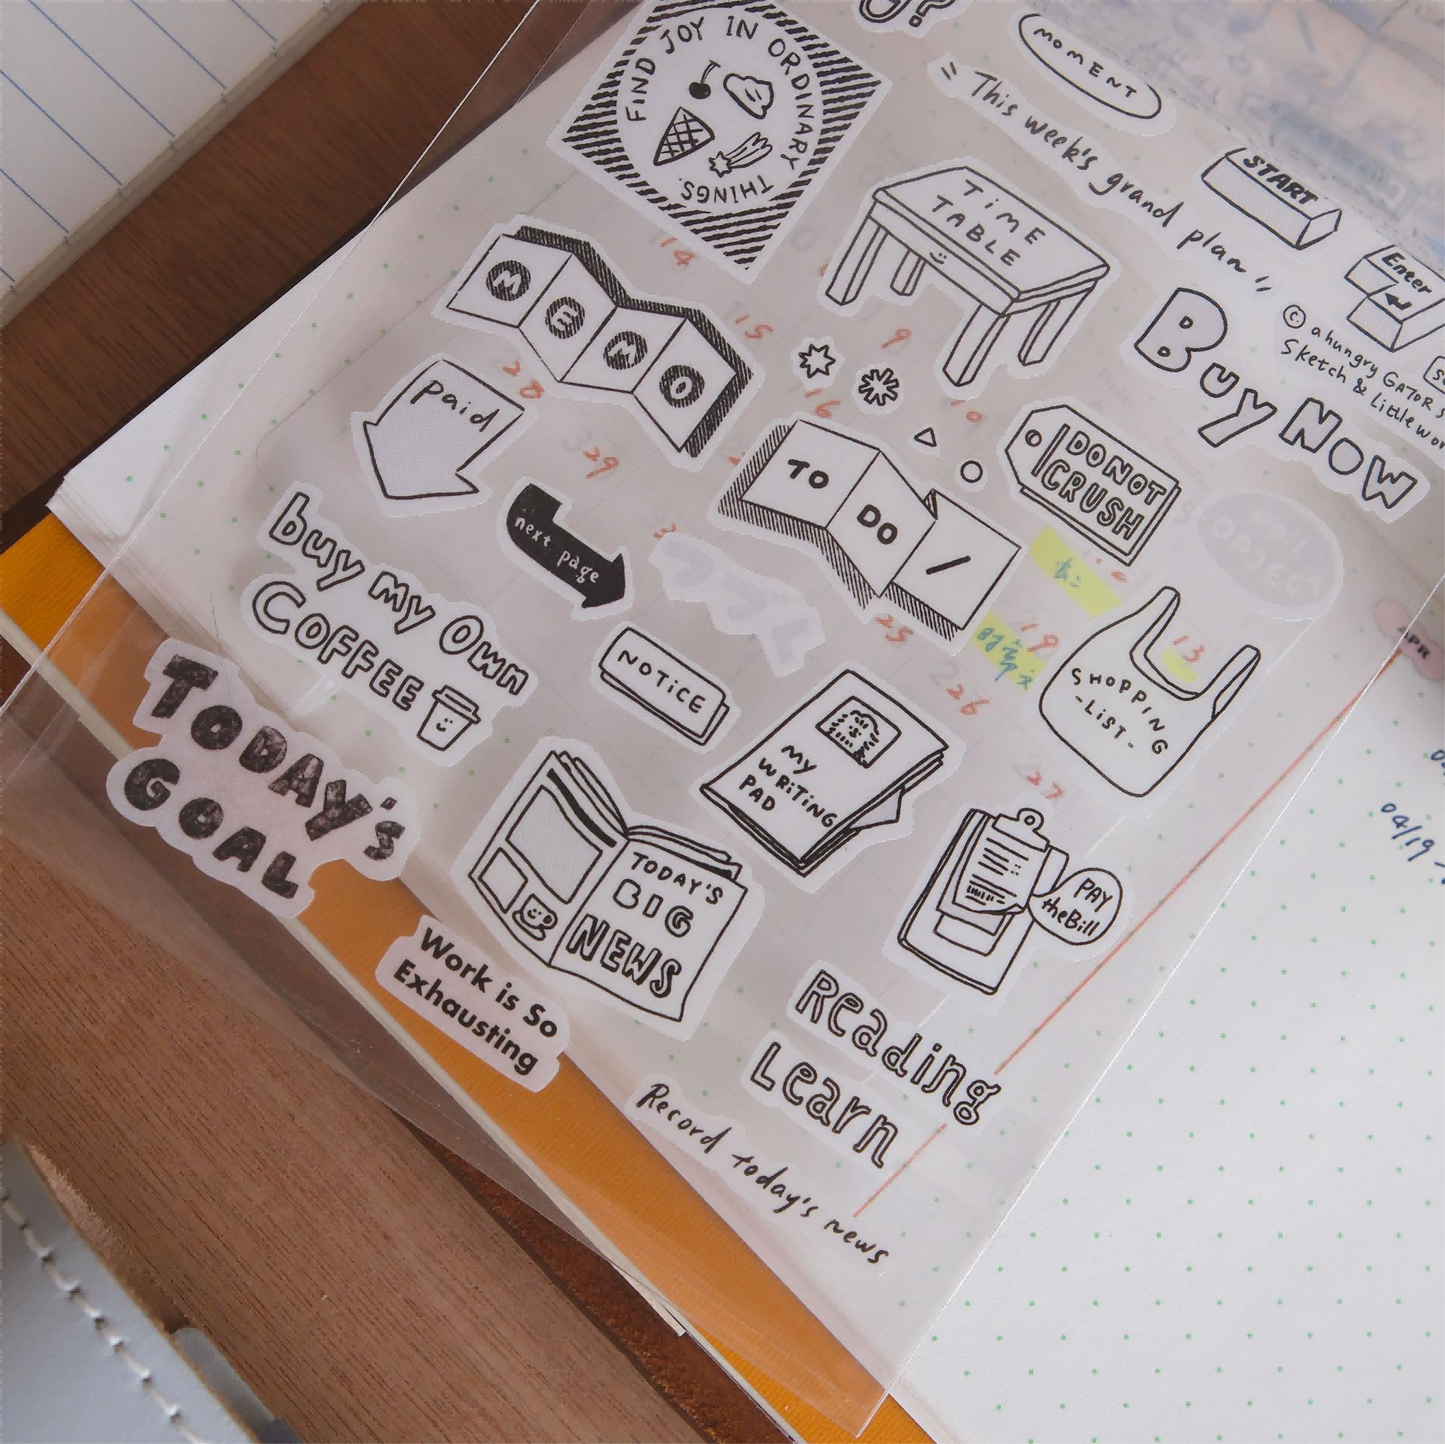 FIND JOY IN ORDINARY THINGS.
MOMENT
This week's grand plan
START
Enter
TiME
TABLE
MEMO
Buy Now
© a hungry GATOR'S
Sketch & Little
paid
TO DO /
DO NOT
CRUSH
next page
buy My Own
COFFEE
NOTiCE
SHOPPiNG
-LiST-
TODAY'S
GOAL
MY
WRiTiNG
PAD
TODAY'S
BIG
NEWS
PAY
the Bill
Work is So
Exhausting
Reading
Learn
Record today's news
14
15
9
16
10
28
29
25
19
26
13
27
APR
04/19